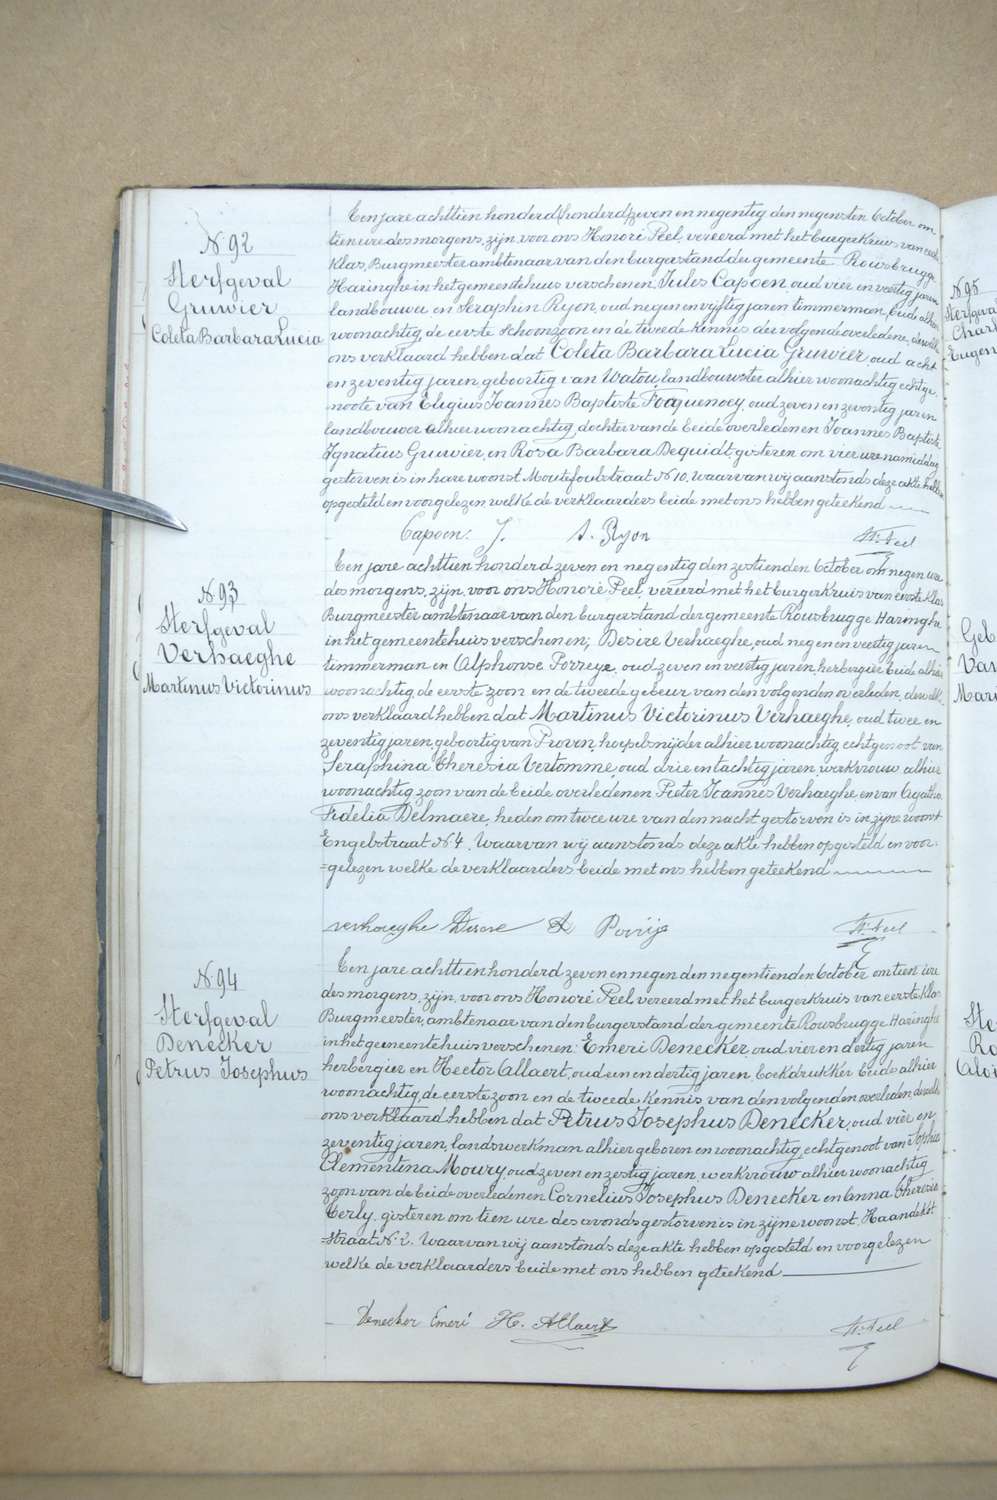 N 92
Sterfgeval
Gruwier
Coleta Barbara Lucia
Een jare achttien honderd honderd zeven en negentig den negensten October om
tien ure des morgens, zijn, voor ons Honoré Peel, vereerd met het burgerkruis van eerste
klas, Burgmeester ambtenaar van den burgerstand der gemeente Rousbrugge
Haringhe in het gemeentehuis verschenen, Jules Capoen, oud vier en veertig jaren
landbouwer en Seraphin Ryon, oud negen en vijftig jaren timmerman, beide alhier
woonachtig, de eerste schoonzoon en de tweede kennis der volgende overledene, dewelke
ons verklaard hebben dat Coleta Barbara Lucia Gruwier, oud acht
en zeventig jaren, geboortig van Watou, landbouwster alhier woonachtig echtge
noote van Eligius Joannes Baptiste Foquenoey, oud zeven en zeventig jaren
landbouwer alhier woonachtig, dochter van de beide overledenen Joannes Baptiste
Ignatius Gruwier, en Rosa Barbara Dequidt, gisteren om vier ure namiddag
gestorven is in hare woonst Moutefoulstraat N 10. Waarvan wij aanstonds deze akte hebben
opgesteld en voorgelezen welke de verklaarders beide met ons hebben geteekend
Capoen. J. S. Ryon H. Peel
N. 93
Sterfgeval
Verhaeghe
Martinus Victorinus
Een jare achttien honderd zeven en negentig den zestienden October om negen ure
des morgens, zijn, voor ons Honoré Peel, vereerd met het burgerkruis van eerste klas
Burgmeester ambtenaar van den burgerstand der gemeente Rousbrugge Haringhe
in het gemeentehuis verschenen; Desire Verhaeghe, oud negen en veertig jaren
timmerman en Alphonse Porreye, oud zeven en veertig jaren, herbergier beide alhier
woonachtig, de eerste zoon en de tweede gebuur van den volgenden overleden, dewelke
ons verklaard hebben dat Martinus Victorinus Verhaeghe, oud twee en
zeventig jaren, geboortig van Proven, hoepelsnijder alhier woonachtig, echtgenoot van
Seraphina Theresia Vertomme, oud drie en tachtig jaren, werkvrouw alhier
woonachtig zoon van de beide overledenen Pieter Joannes Verhaeghe, en van Agatha
Fidelia Delmaere, heden om twee ure van den nacht gestorven is in zijne woonst
Engelstraat N. 4. Waarvan wij aanstonds deze akte hebben opgesteld en voor-
=gelezen welke de verklaarders beide met ons hebben geteekend
verhaeghe Desire A Porrije H. Peel
N. 94
Sterfgeval
Denecker
Petrus Josephus
Een jare achttien honderd zeven en negen den negentienden October om tien ure
des morgens, zijn, voor ons Honoré Peel, vereerd met het burgerkruis van eerste klas
Burgmeester, ambtenaar van den burgerstand der gemeente Rousbrugge Haringhe
in het gemeentehuis verschenen: Emeri Denecker, oud vier en dertig jaren
herbergier en Hector Allaert, oud een en dertig jaren, boekdrukker beide alhier
woonachtig, de eerste zoon en de tweede kennis van den volgenden overleden, dewelke
ons verklaard hebben dat Petrus Josephus Denecker, oud vier en
zeventig jaren, landswerkman alhier geboren en woonachtig, echtgenoot van Sophia
Clementina Moury, oud zeven en zestig jaren, werkvrouw alhier woonachtig
zoon van de beide overledenen Cornelius Josephus Denecker en Anna Theresia
Terly, gisteren om tien ure des avonds gestorven is in zijne woonst, Haandekst
=straat N. 2. Waarvan wij aanstonds deze akte hebben opgesteld en voorgelezen
welke de verklaarders beide met ons hebben geteekend
Denecker Emeri H. Allaert H. Peel
N. 95